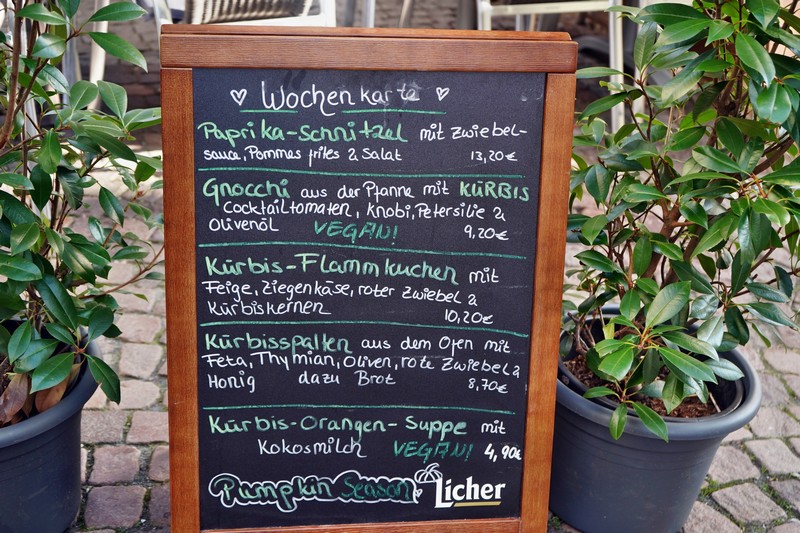 ♡ Wochenkarte ♡
Paprika-Schnitzel mit Zwiebel-
sauce, Pommes frites & Salat 13,20€
Gnocchi aus der Pfanne mit KÜRBIS
Cocktailtomaten, Knobi, Petersilie &
Olivenöl VEGAN! 9,20€
Kürbis-Flammkuchen mit
Feige, Ziegenkäse, roter Zwiebel &
Kürbiskernen 10,20€
Kürbisspalten aus dem Ofen mit
Feta, Thymian, Oliven, rote Zwiebel &
Honig dazu Brot 8,70€
Kürbis-Orangen-Suppe mit
Kokosmilch VEGAN! 4,90€
Pumpkin Season Licher